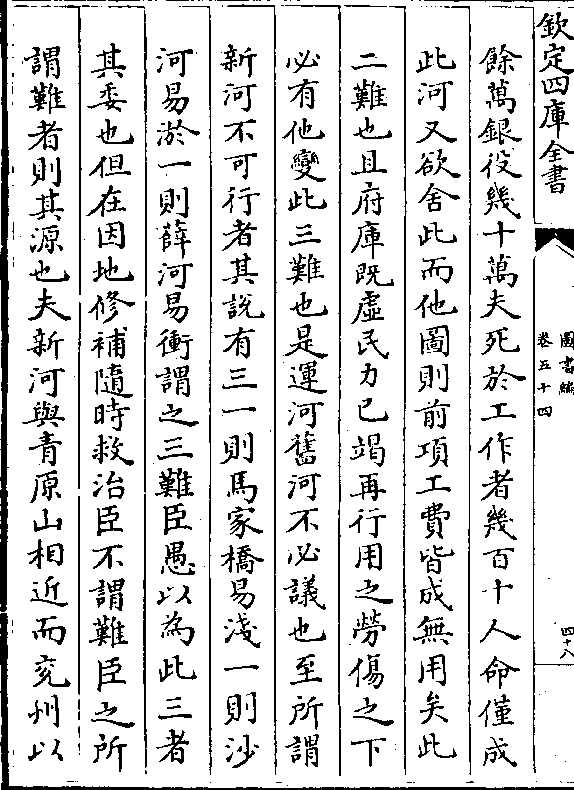 欽定四庫全書
圖書編
卷五十四
四十八
餘萬銀役幾十萬夫死於工作者幾百十人命僅成
此河又欲舍此而他圖則前項工費皆成無用矣此
二難也且府庫既虛民力已竭再行用之勞傷之下
必有他變此三難也是運河舊河不必議也至所謂
新河不可行者其說有三一則馬家橋易淺一則沙
河易淤一則薛河易衝謂之三難臣愚以為此三者
其委也但在因地修補隨時救治臣不謂難臣之所
謂難者則其源也夫新河與青原山相近而兖州以